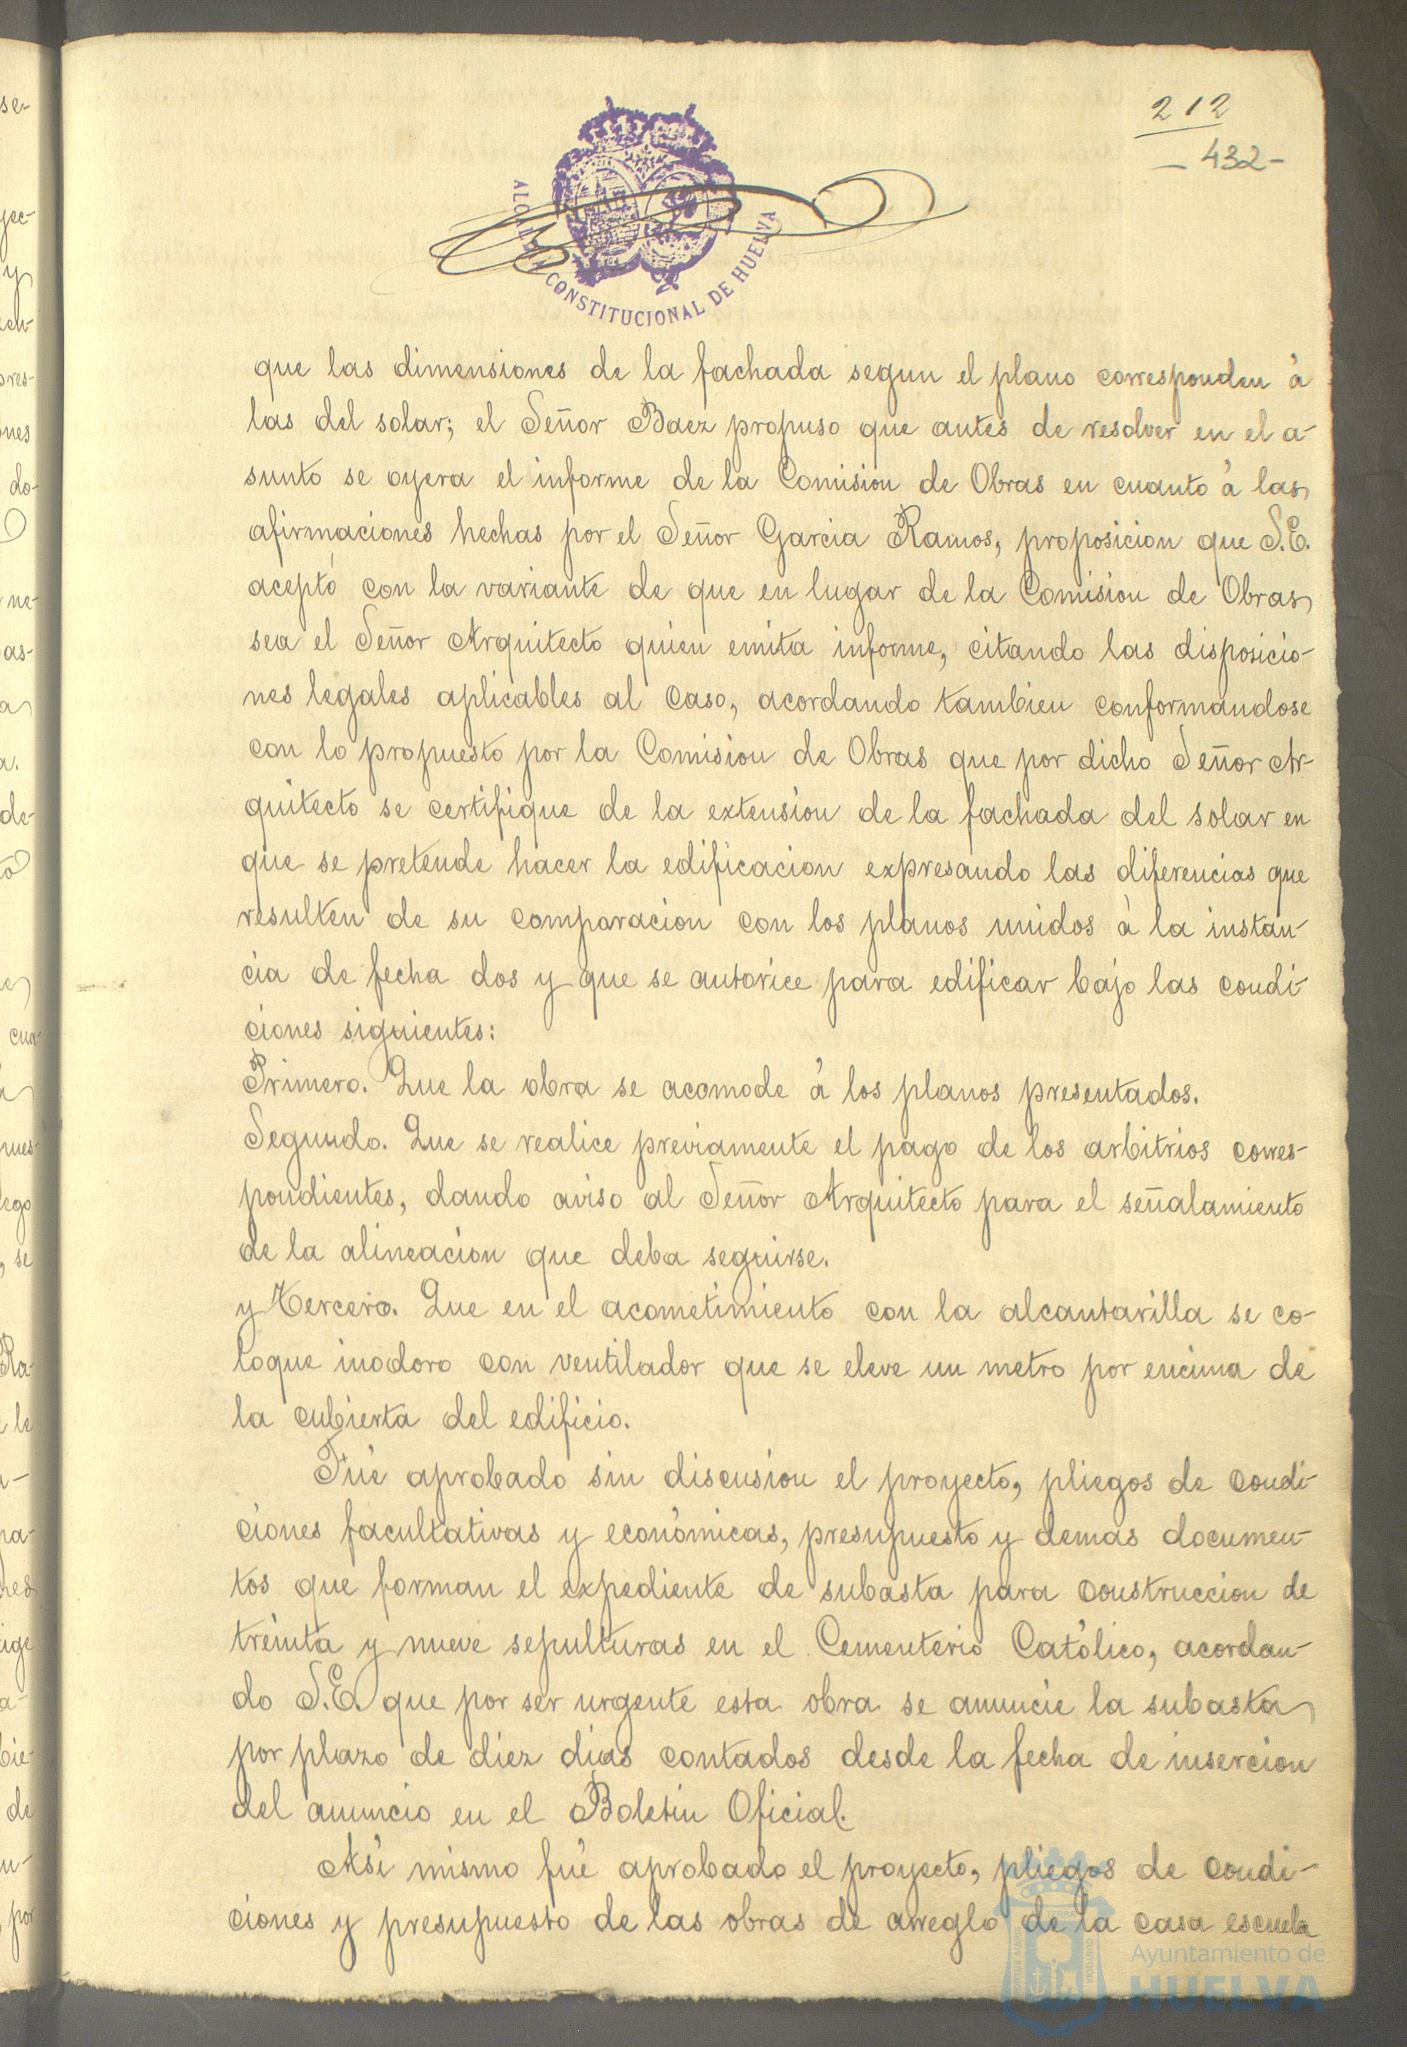 212
- 432 -
ALCALDIA CONSTITUCIONAL DE HUELVA
que las dimensiones de la fachada segun el plano corresponden á
las del solar; el Señor Baez propuso que antes de resolver en el a-
sunto se oyera el informe de la Comision de Obras en cuanto á las
afirmaciones hechas por el Señor Garcia Ramos, proposicion que S.E.
aceptó con la variante de que en lugar de la Comision de Obras
sea el Señor Arquitecto quien emita informe, citando las disposicio-
nes legales aplicables al caso, acordando tambien conformandose
con lo propuesto por la Comision de Obras que por dicho Señor Ar-
quitecto se certifique de la extension de la fachada del solar en
que se pretende hacer la edificacion expresando las diferencias que
resulten de su comparacion con los planos unidos á la instan-
cia de fecha dos y que se autorice para edificar bajo las condi-
ciones siguientes:
Primero. Que la obra se acomode á los planos presentados.
Segundo. Que se realice previamente el pago de los arbitrios corres-
pondientes, dando aviso al Señor Arquitecto para el señalamiento
de la alineacion que deba seguirse.
y Tercero. Que en el acometimiento con la alcantarilla se co-
loque inodoro con ventilador que se eleve un metro por encima de
la cubierta del edificio.
Fué aprobado sin discusion el proyecto, pliegos de condi-
ciones facultativas y económicas, presupuesto y demas documen-
tos que forman el expediente de subasta para construccion de
treinta y nueve sepulturas en el Cementerio Católico, acordan-
do S.E. que por ser urgente esta obra se anuncie la subasta
por plazo de diez dias contados desde la fecha de insercion
del anuncio en el Boletin Oficial.
Asi mismo fué aprobado el proyecto, pliegos de condi-
ciones y presupuesto de las obras de arreglo de la casa escuela
Ayuntamiento de
HUELVA